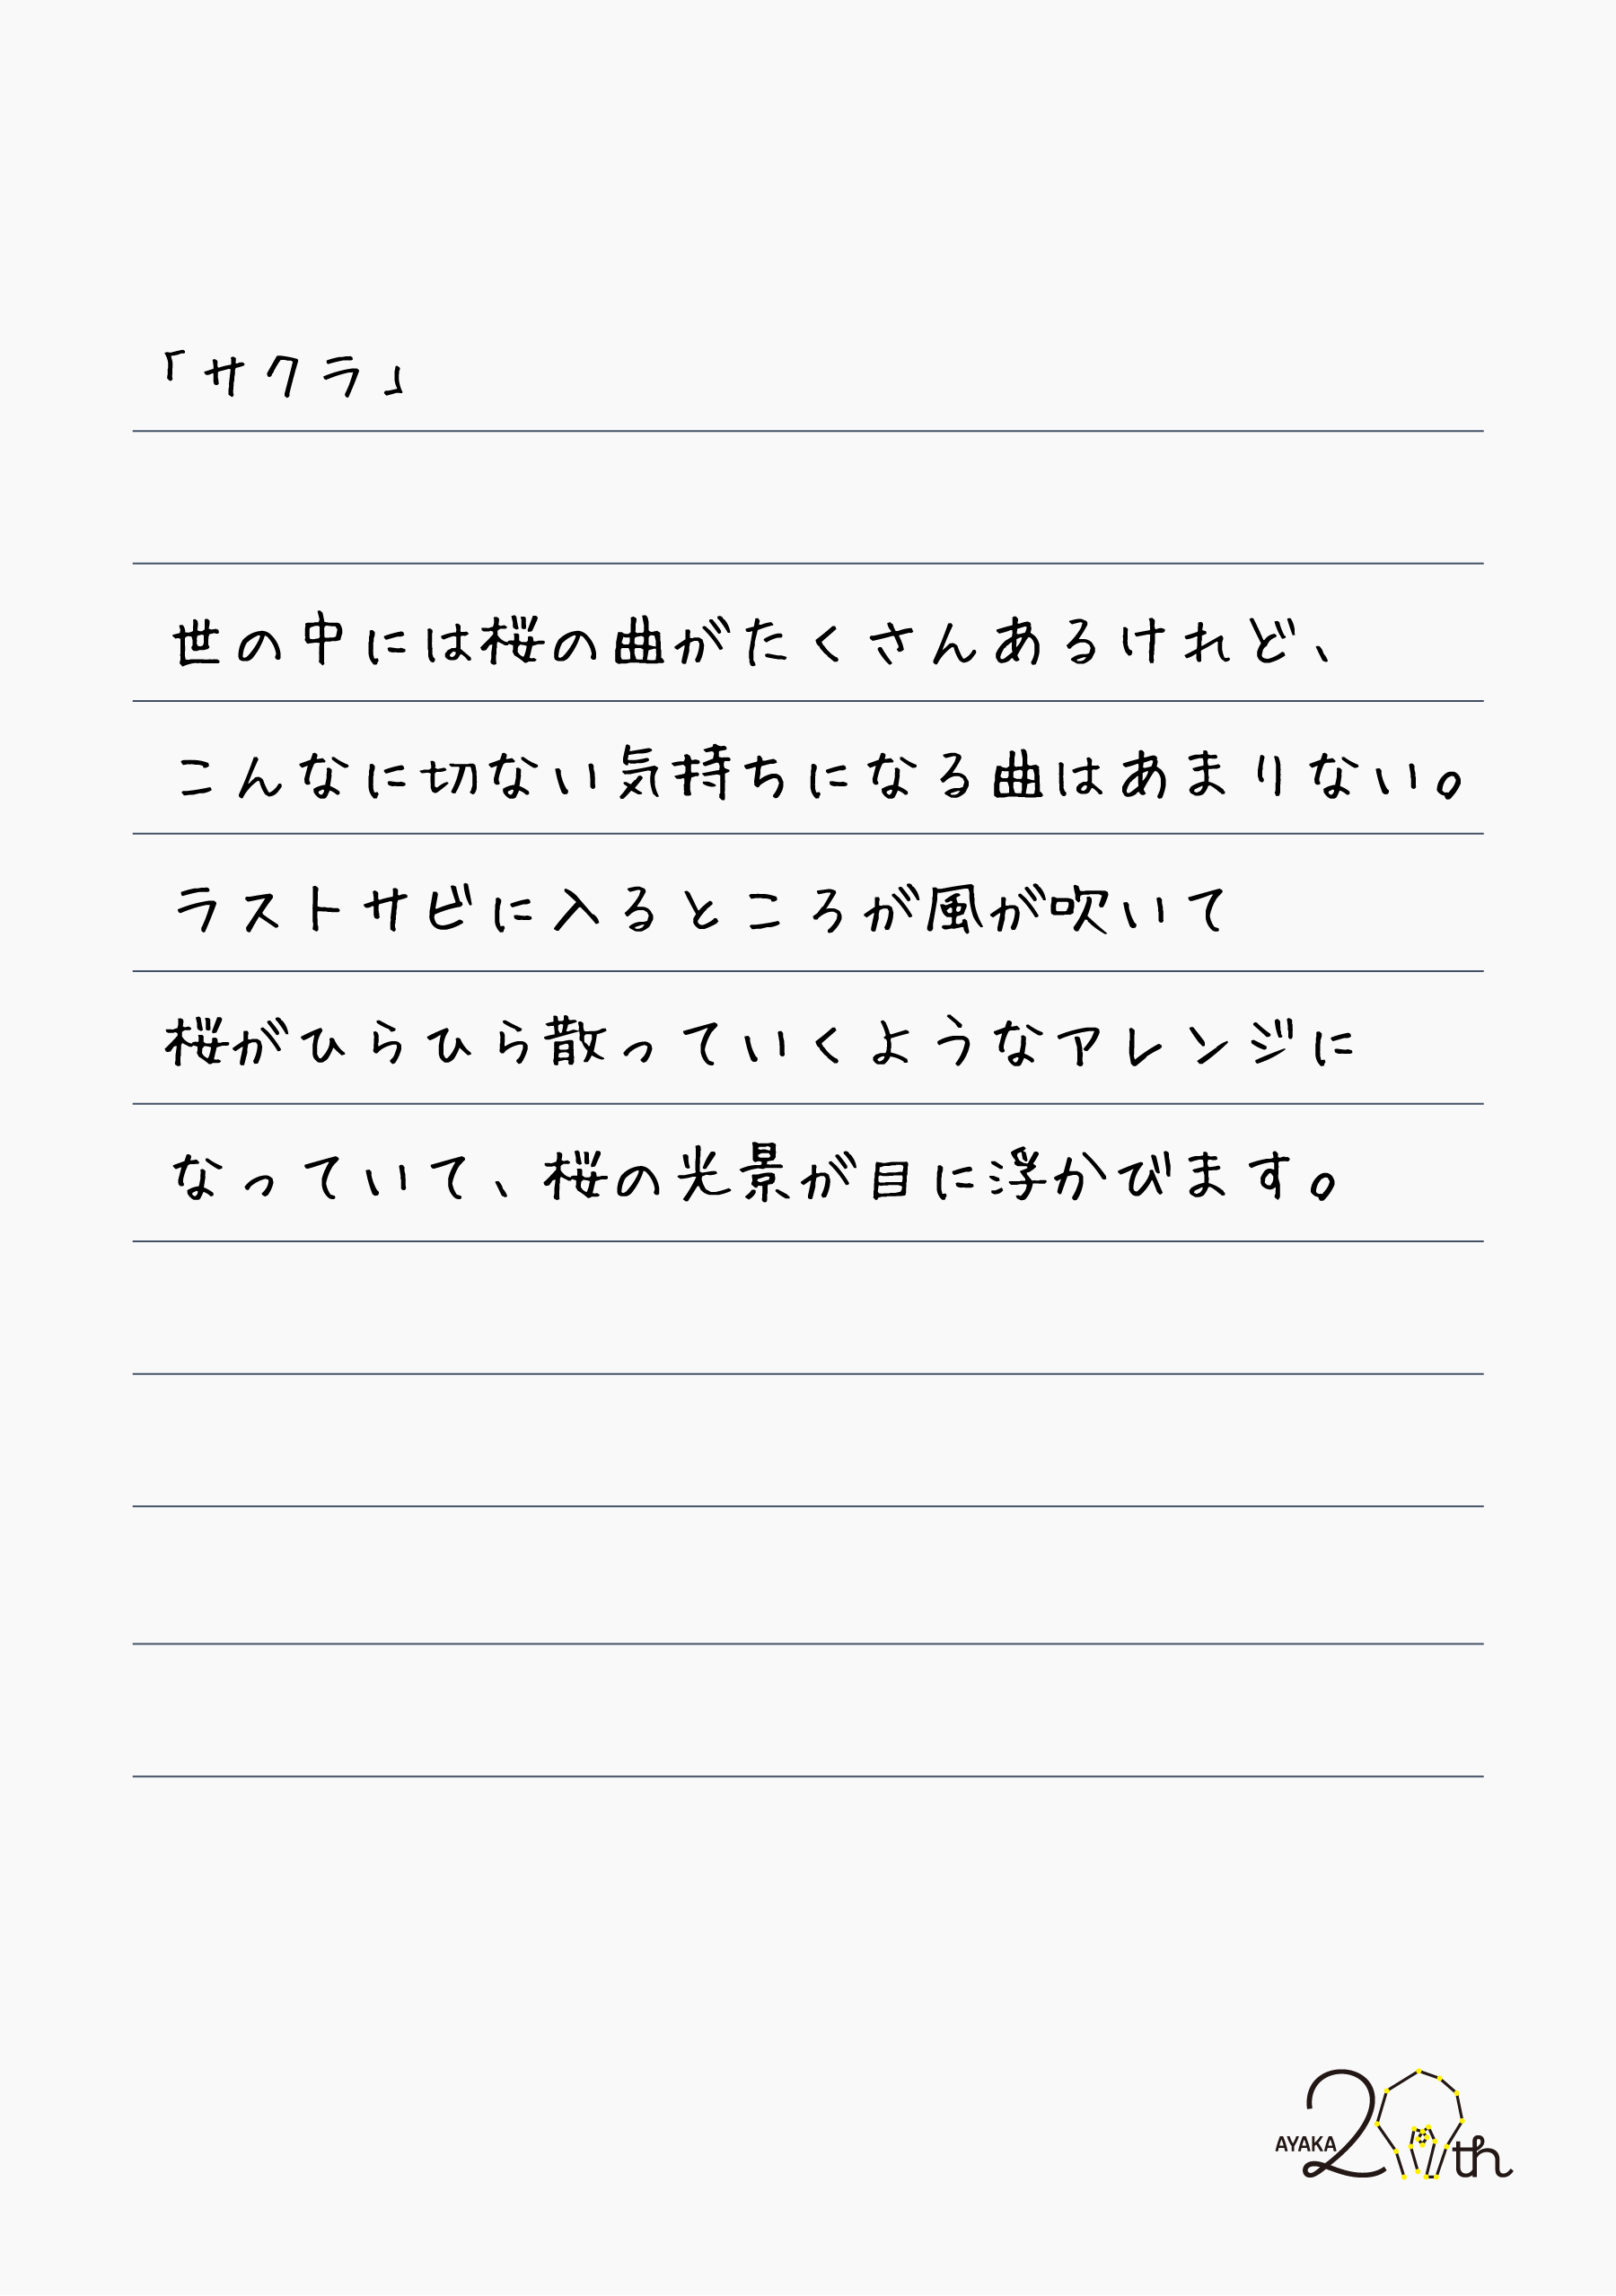 「サクラ」
世の中には桜の曲がたくさんあるけれど、
こんなに切ない気持ちになる曲はあまりない。
ラストサビに入るところが風が吹いて
桜がひらひら散っていくようなアレンジに
なっていて、桜の光景が目に浮かびます。
AYAKA 20th